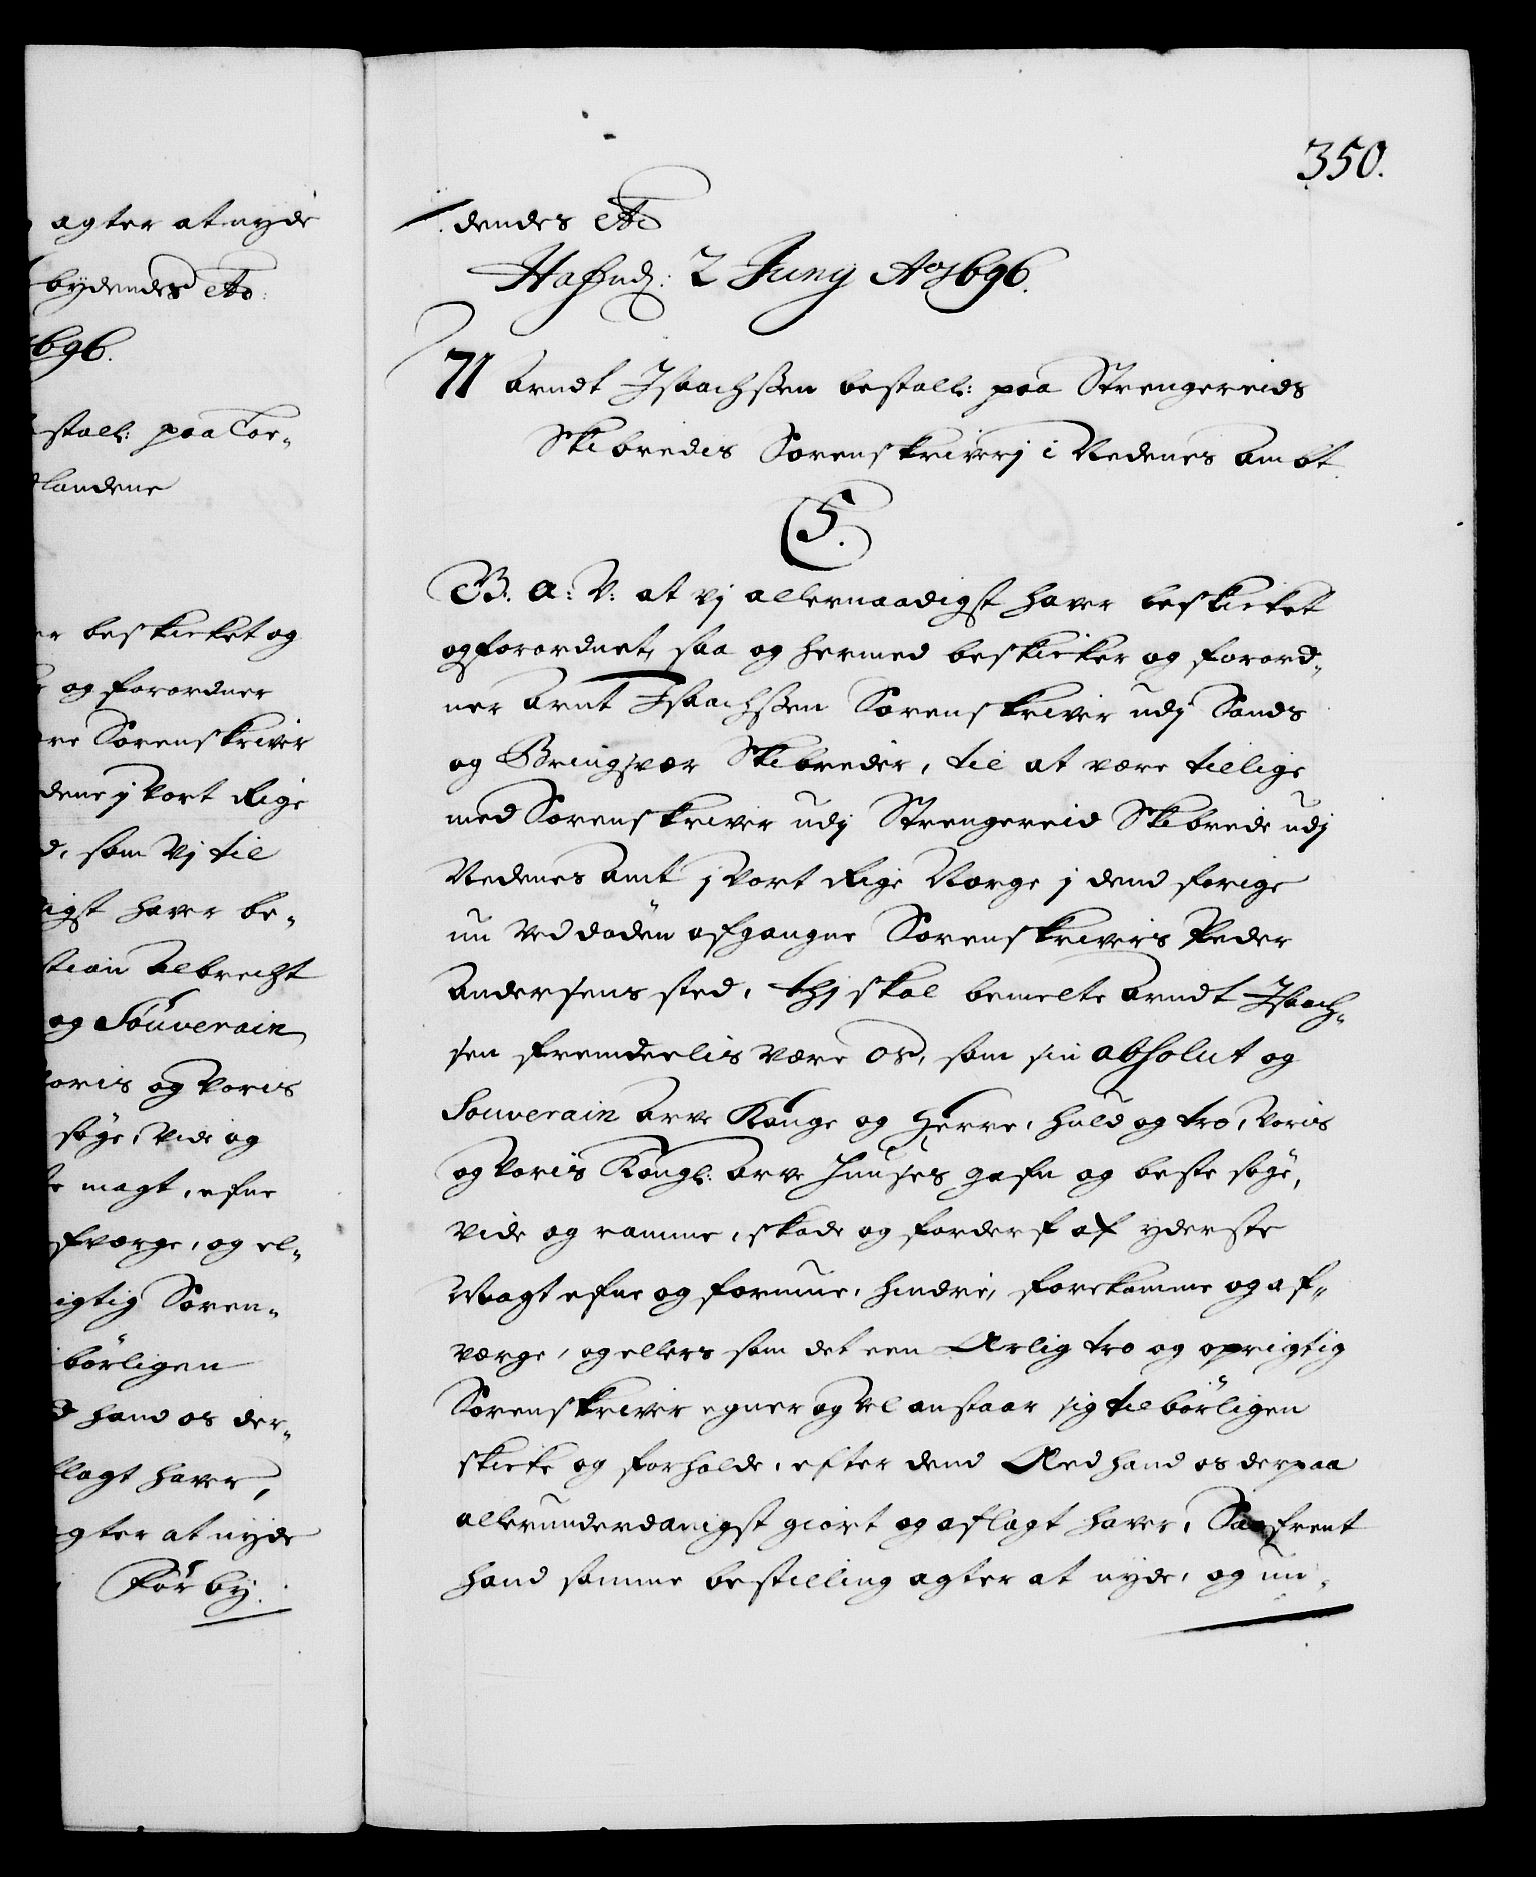 agter at nyde
bydendes etc:
1696.
stall: paa Tor-
landene
er beskicket og
og forordner
re Sorenskriver
dene j Vort Rige
d, som Vj til
igst haver be-
stian Albrecht
og Souverain
Voris og Voris
søge, Vide og
magt, efne
fværge, og el-
igtig Soren-
börligen
d hand os der-
flagt haver,
agter at nyde
Förby.
350.
/. dendes etc
Haffnd: 2 Junij Ao 1696.
71 Arndt Jsaachssen bestall: paa Strengereids
Skibredis Sorenskriverj i Nedenes Ambt.
C5.
G. A: V: at vj allernaadigst haver beskicket
og forordnet, saa og hermed beskicker og forord-
ner Arnt Jsaachssen Sorenskriver udj Sands
og Gringsvær Skibreder, til at være tillige
med Sorenskriver udj Strengereid Skibrede udj
Nedenes Amt j Vort Rige Norge j dend forige
nu ved döden afgangne Sorenskrivers Peder
Andersens sted, thj skal bemelte Arndt Jsaach-
sen fremdeelis være os, som sin absolut og
Souverain Arve Konge og Herre, huld og tro, Voris
og Voris Kongl: Arve Huuses gafn og beste søge,
vide og ramme, skade og forderf af yderste
Magt efne og formue, hindre, forekomme og af-
værge, og ellers som det een Ærlig tro og oprigtig
Sorenskriver egner og Vel anstaar sig tilbörligen
skicke og forholde, efter dend Æed hand os derpaa
allerunderdanigst giort og aflagt haver, Saafremt
hand samme bestilling agter at nyde, og un-